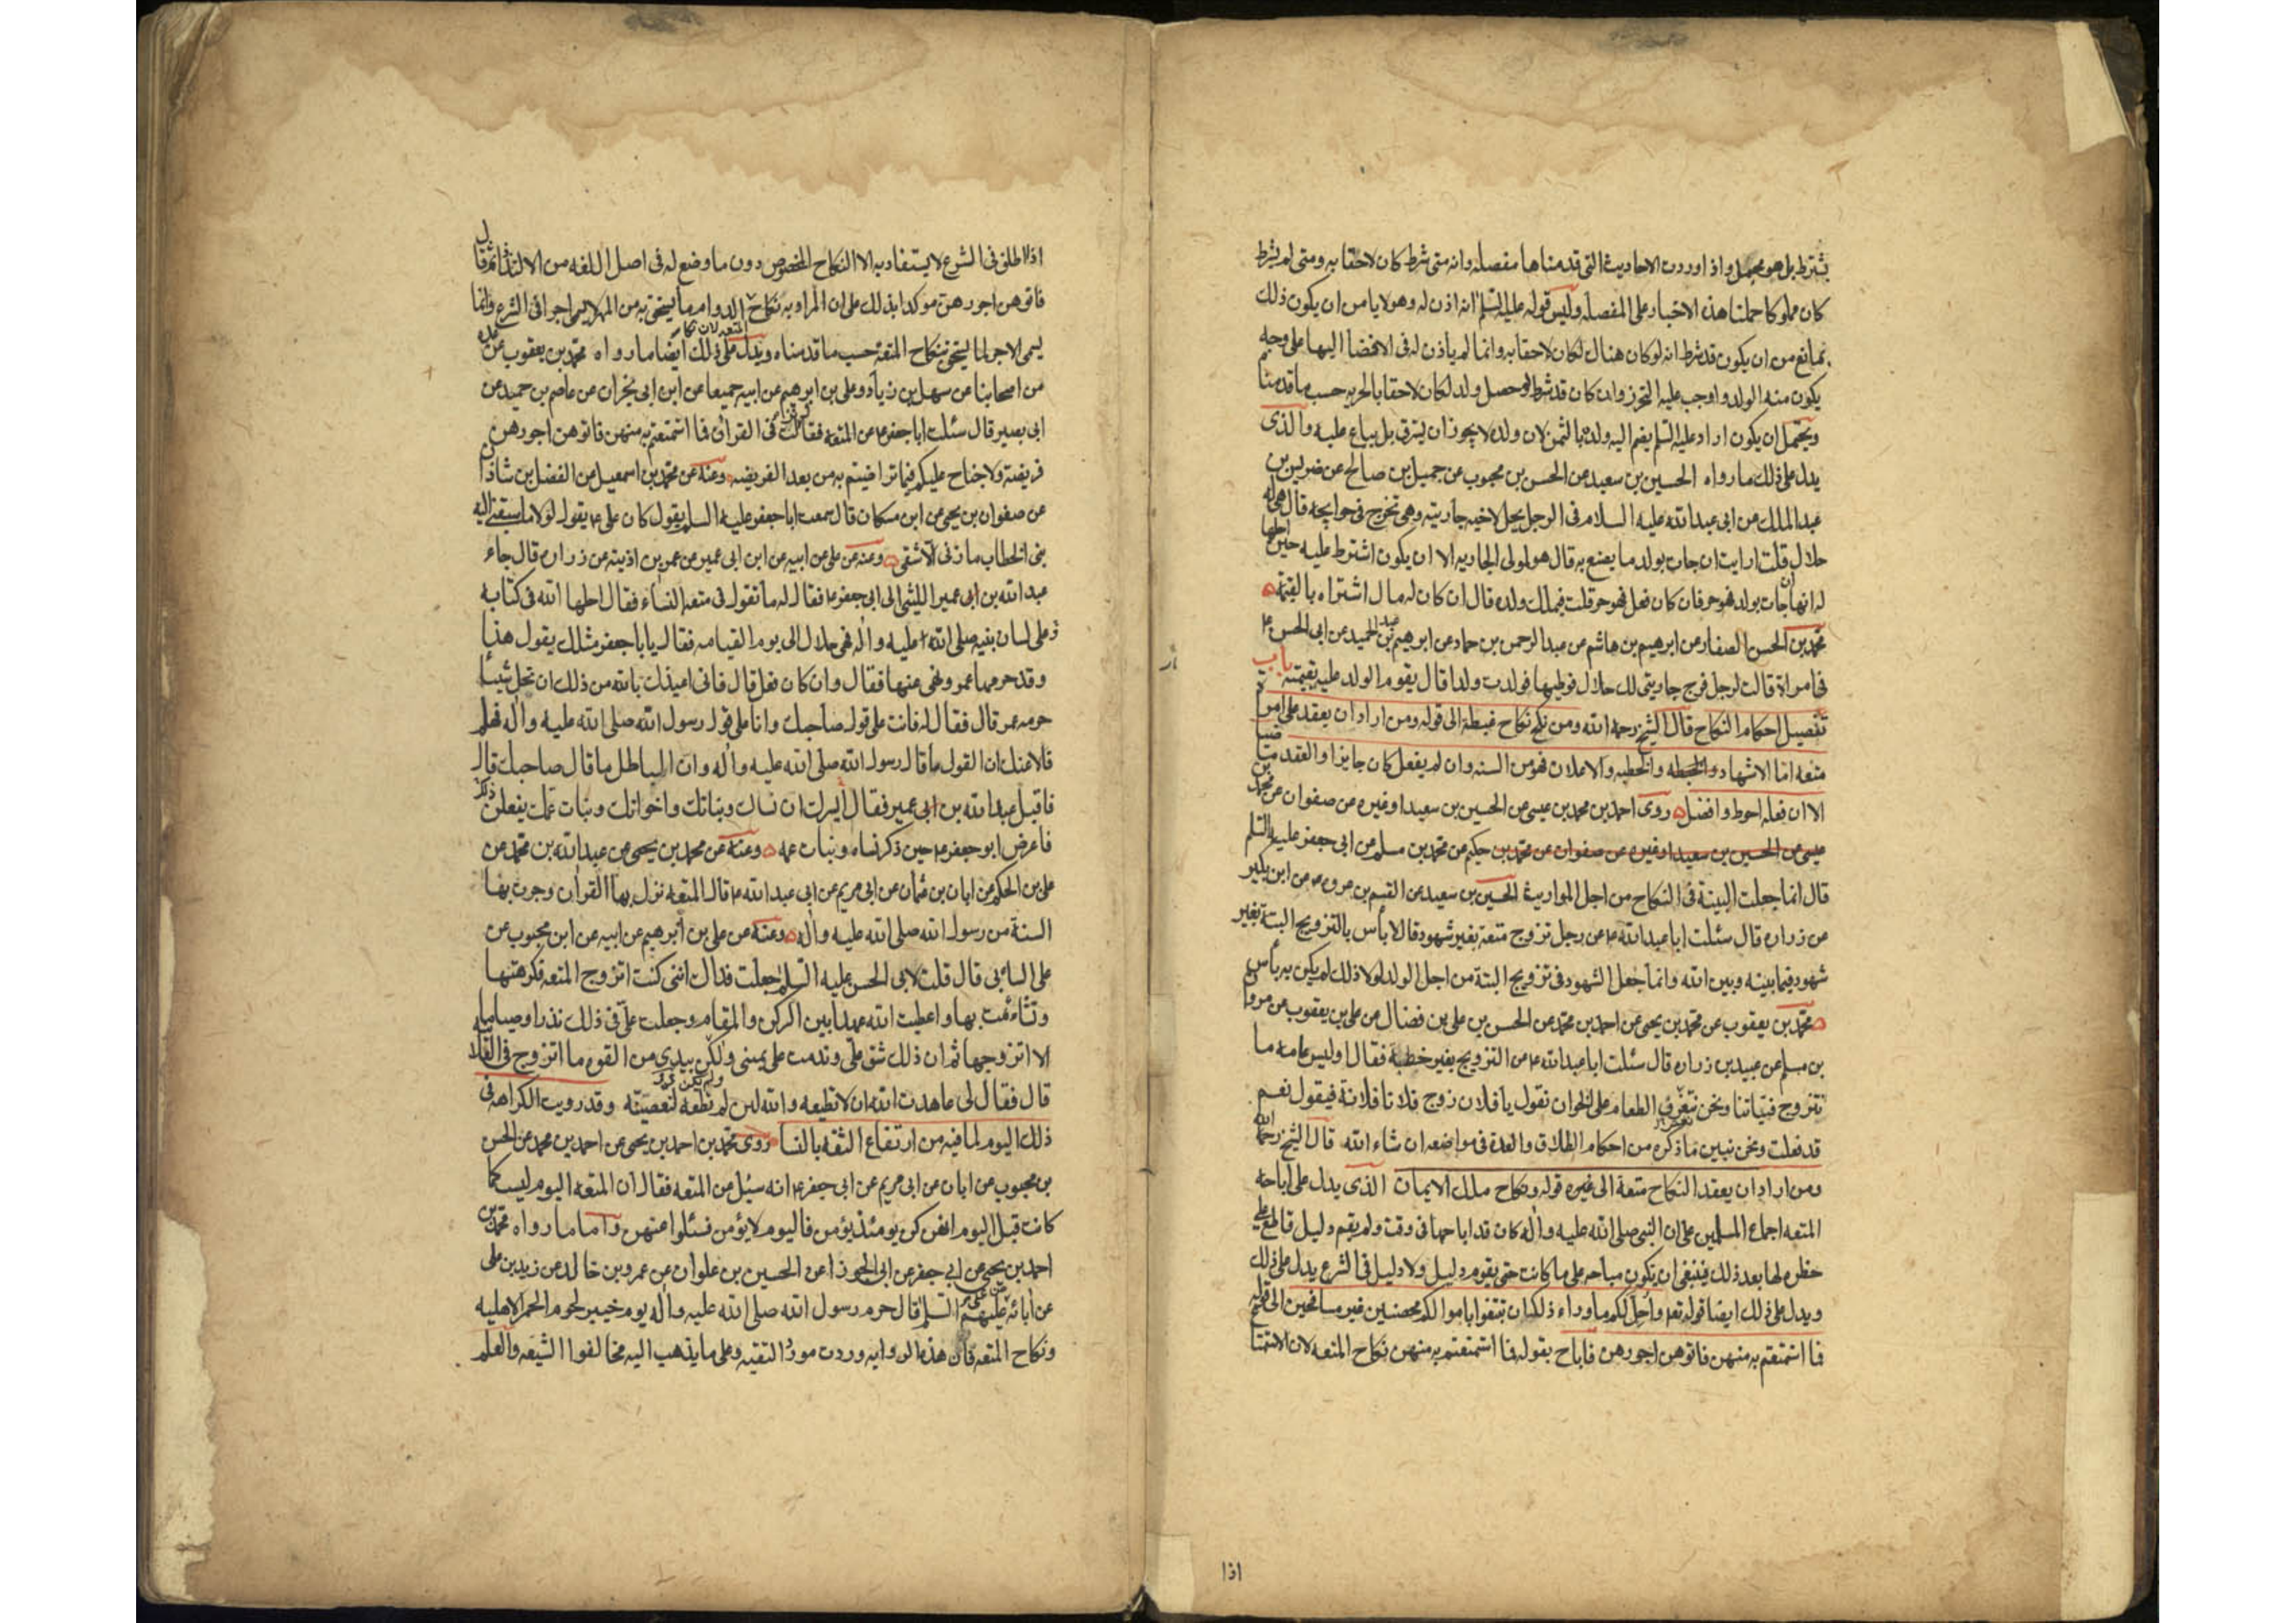 يشترط بل هو مجمل واذا وردت الاحاديث التى قدمناها مفصله وانه متى شرط كان لاحقا به ومتى لم يشرط
كان مملوكا حملنا هذه الاخبار على المفصله وليس قوله عليه السلم انه اذن له وهو لا يامن ان يكون ذلك
بمانع من ان يكون قد شرط انه لو كان هناك لكان لاحقا به وانما لم ياذن له فى الافضا اليها على وجه
يكون منه الولد واوجب عليه التحرز وان كان قد شرط لو حصل ولد لكان لاحقا بالحريه حسب ما قدمنا
ويحتمل ان يكون اراد عليه السلم يضم اليه ولده بالثمن لان ولده لا يجوز ان يسترق بل يباع عليه والذى
يدل على ذلك ما رواه الحسين بن سعيد عن الحسن بن محبوب عن جميل بن صالح عن ضريس بن
عبد الملك عن ابى عبد الله عليه السلام فى الرجل يحل لاخيه جاريته وهى تخرج فى حوايجه قال هى له
حلال قلت ارايت ان جات بولد ما يصنع به قال هو لمولى الجاريه الا ان يكون اشترط عليه حين احلها
له انها ان جات بولد فهو حر فان كان فعل فهو حر قلت فيملك ولده قال ان كان له مال اشتراه بالقيمة
محمد بن الحسن الصفار عن ابرهيم بن هاشم عن عبد الرحمن بن حماد عن ابرهيم بن عبد الحميد عن ابى الحسن ع
فى امراة قالت لرجل فرج جاريتى لك حلال فوطيها فولدت ولدا قال يقوم الولد عليه بقيمته باب
تفصيل احكام النكاح قال الشيخ رحمه الله ومن نكح نكاح غبطة الى قوله ومن اراد ان يعقد على امراة
متعه اما الاشهاد والخطبه والاعلان فهو من السنه وان لم يفعل كان جايزا والعقد ماضيا
الا ان فعله احوط وافضل روى احمد بن محمد بن عيسى عن الحسين بن سعيد او غيره عن صفوان عن محمد بن
عيسى عن الحسين بن سعيد او غيره عن صفوان عن محمد بن حكيم عن محمد بن مسلم عن ابى جعفر عليه السلم
قال انما جعلت البينة فى النكاح من اجل المواريث الحسين بن سعيد عن القسم بن عروه عن ابن بكير
عن زراره قال سئلت ابا عبد الله ع عن رجل تزوج متعة بغير شهود قال لا بأس بالتزويج البتة بغير
شهود فيما بينه وبين الله وانما جعل الشهود فى تزويج البتة من اجل الولد لولا ذلك لم يكن به بأس
محمد بن يعقوب عن محمد بن يحيى عن احمد بن محمد عن الحسن بن على بن فضال عن على بن يعقوب عن مروان
بن مسلم عن عبيد بن زراره قال سئلت ابا عبد الله ع عن التزويج بغير خطبة فقال اوليس عامه ما
نتزوج فتياتنا ونحن نتعرق الطعام على الخوان نقول يا فلان زوج فلانا فلانة فيقول نعم
قد فعلت ونحن نبين ما ذكره من احكام الطلاق والعدة فى مواضعه ان شاء الله قال الشيخ رحمه الله
ومن اراد ان يعقد النكاح متعة الى غيره قوله ونكاح ملك الايمان الذى يدل على اباحه
المتعه اجماع المسلمين على ان النبى صلى الله عليه واله كان قد اباحها فى وقت ولم يقم دليل قاطع على
حظره لها بعد ذلك فينبغى ان يكون مباحه على ما كانت حتى يقوم دليل ولا دليل فى الشرع يدل على ذلك
ويدل على ذلك ايضا قوله تعه واحل لكم ما وراء ذلكم ان تبتغوا باموالكم محصنين غير مسافحين الى قوله
فما استمتعتم به منهن فاتوهن اجورهن فاباح بقوله فما استمتعتم به منهن نكاح المتعه لان الاستمتاع
اذا
اذا اطلق فى الشرع لا يستفاد به الا النكاح المخصوص دون ما وضع له فى اصل اللغه من الالتذاذ ثم قال
فاتوهن اجورهن موكدا بذلك على ان المراد به نكاح المتعه لان نكاح الدوام ما يستحق به من المهر لا يسمى اجرا فى الشرع وانما
يسمى الاجر لما يستحق بنكاح المتعة حسب ما قدمناه ويدل على ذلك ايضا ما رواه محمد بن يعقوب عن عده
من اصحابنا عن سهل بن زياد وعلى بن ابرهيم عن ابيه جميعا عن ابن ابى نجران عن عاصم بن حميد عن
ابى بصير قال سئلت ابا جعفر ع عن المتعة فقال نزلت فى القرآن فما استمتعتم به منهن فاتوهن اجورهن
فريضة ولا جناح عليكم فيما تراضيتم به من بعد الفريضه وعنه عن محمد بن اسمعيل عن الفضل بن شاذان
عن صفوان بن يحيى عن ابن مسكان قال سمعت ابا جعفر عليه السلم يقول كان على ع يقول لولا ما سبقنى اليه
بنى الخطاب ما زنى الا شقى وعنه عن على عن ابيه عن ابن ابى عمير عن عمر بن اذينة عن زراره قال جاء
عبد الله بن ابى عمير الليثى الى ابى جعفر ع فقال له ما تقول فى متعه النساء فقال احلها الله فى كتابه
وعلى لسان نبيه صلى الله عليه واله فهى حلال الى يوم القيامه فقال يابا جعفر مثلك يقول هذا
وقد حرمها عمر ونهى عنها فقال وان كان فعل قال فانى اعيذك بالله من ذلك ان تحل شيئا
حرمه عمر قال فقال له فانت على قول صاحبك وانا على قول رسول الله صلى الله عليه واله فهلم
فلاعنك ان القول ما قال رسول الله صلى الله عليه واله وان الباطل ما قال صاحبك قال
فاقبل عبد الله بن ابى عمير فقال ايسرك ان نساك وبناتك واخواتك وبنات عمك يفعلن ذلك
فاعرض ابو جعفر ع حين ذكر نساه وبنات عمه وعنه عن محمد بن يحيى عن عبد الله بن محمد عن
على بن الحكم عن ابان بن عثمان عن ابى مريم عن ابى عبد الله ع قال المتعه نزل بها القرآن وجرت بها
السنة من رسول الله صلى الله عليه واله وعنه عن على بن ابرهيم عن ابيه عن ابن محبوب عن
على السائى قال قلت لابى الحسن عليه السلم جعلت فداك اننى كنت اتزوج المتعه فكرهتها
وتشاءمت بها واعطيت الله عهدا بين الركن والمقام وجعلت على فى ذلك نذرا وصياما
الا اتزوجها ثم ان ذلك شق على وندمت على يمينى ولم يكن بيدى من القوه ما اتزوج فى العلانيه
قال فقال لى عاهدت الله ان لا تطيعه والله لئن لم تطعه لتعصينه وقد رويت الكراهه فى
ذلك اليوم لما فيه من ارتفاع الثقه بالنسا روى محمد بن احمد بن يحيى عن احمد بن محمد عن الحسن
بن محبوب عن ابان عن ابى مريم عن ابى جعفر ع انه سئل عن المتعه فقال ان المتعه اليوم ليست كما
كانت قبل اليوم انهن كن يومئذ يؤمن فاليوم لا يؤمن فسئلوا عنهن واما ما رواه محمد بن
احمد بن يحيى عن ابى جعفر عن ابى الجوزا عن الحسين بن علوان عن عمرو بن خالد عن زيد بن على
عن آبائه عن على عليهم السلم قال حرم رسول الله صلى الله عليه واله يوم خيبر لحوم الحمر الاهليه
ونكاح المتعه فان هذه الروايه وردت مورد التقيه وعلى ما يذهب اليه مخالفوا الشيعه والعلم